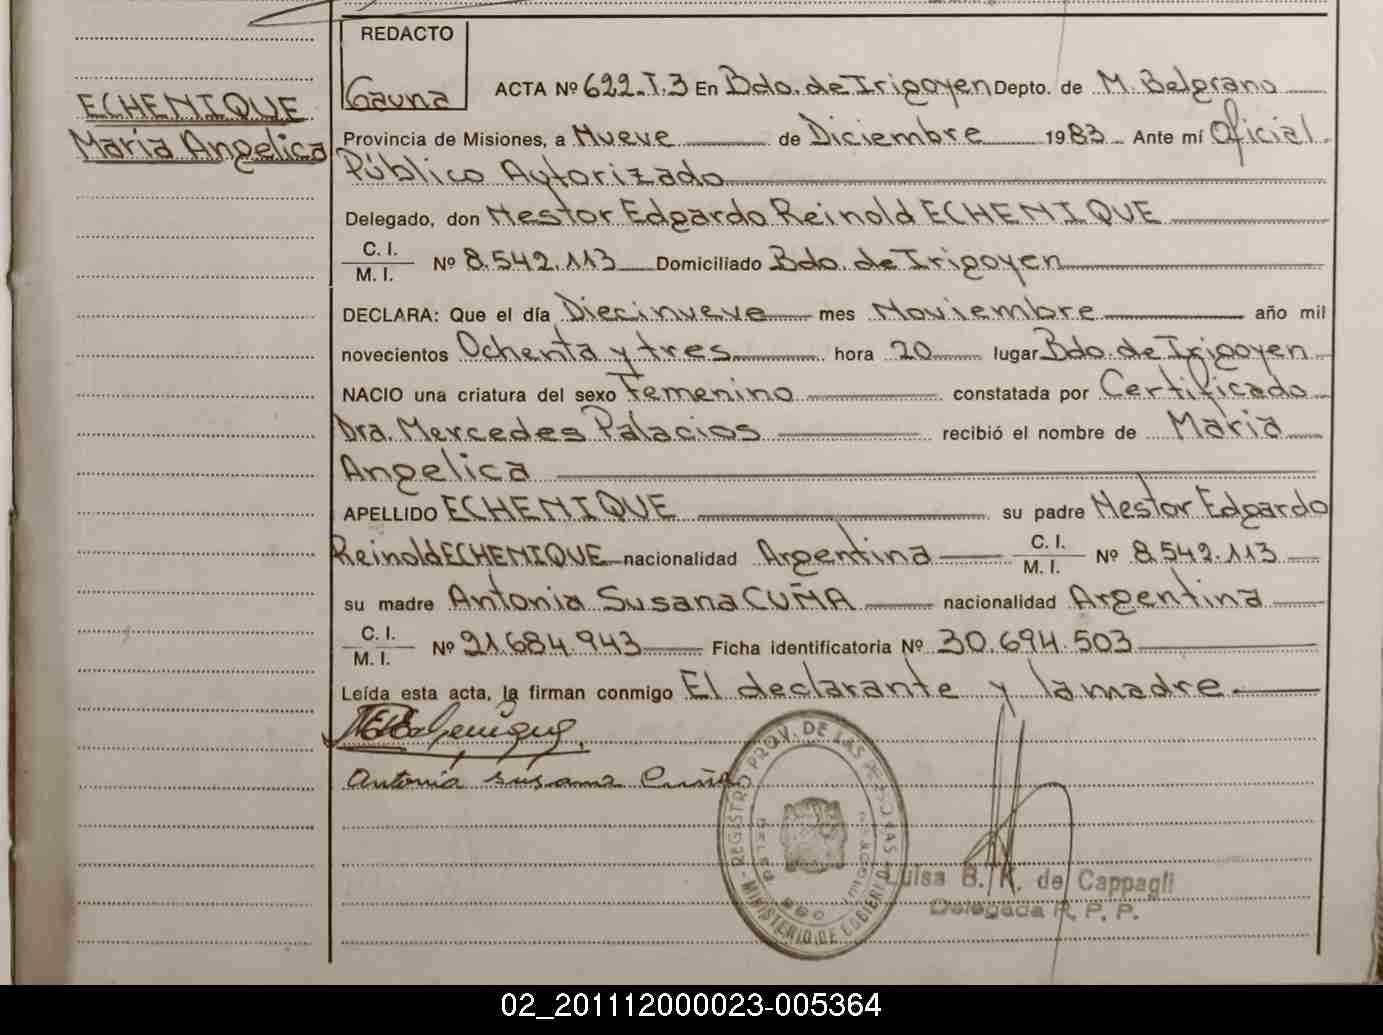 REDACTO
Gauna
ECHENIQUE
Maria Angelica
ACTA Nº 622.T.3 En Bdo. de Irigoyen Depto. de M. Belgrano
Provincia de Misiones, a Nueve de Diciembre 1983 Ante mí Oficial
Público Autorizado
Delegado, don Nestor Edgardo Reinold ECHENIQUE
C. I.
M. I. Nº 8.542.113 Domiciliado Bdo. de Irigoyen
DECLARA: Que el día Diecinueve mes Noviembre año mil
novecientos Ochenta y tres hora 20 lugar Bdo. de Irigoyen
NACIO una criatura del sexo Femenino constatada por Certificado
Dra. Mercedes Palacios recibió el nombre de Maria
Angelica
APELLIDO ECHENIQUE su padre Nestor Edgardo
Reinold ECHENIQUE nacionalidad Argentina C. I. M. I. Nº 8.542.113
su madre Antonia Susana CUÑA nacionalidad Argentina
C. I.
M. I. Nº 21.684.943 Ficha identificatoria Nº 30.694.503
Leída esta acta, la firman conmigo El declarante y la madre
Antonia susana Cuña
REGISTRO PROV. DE LAS PERSONAS
MINISTERIO DE GOBIERNO
Luisa B. K. de Cappagli
Delegada R. P. P.
02_201112000023-005364